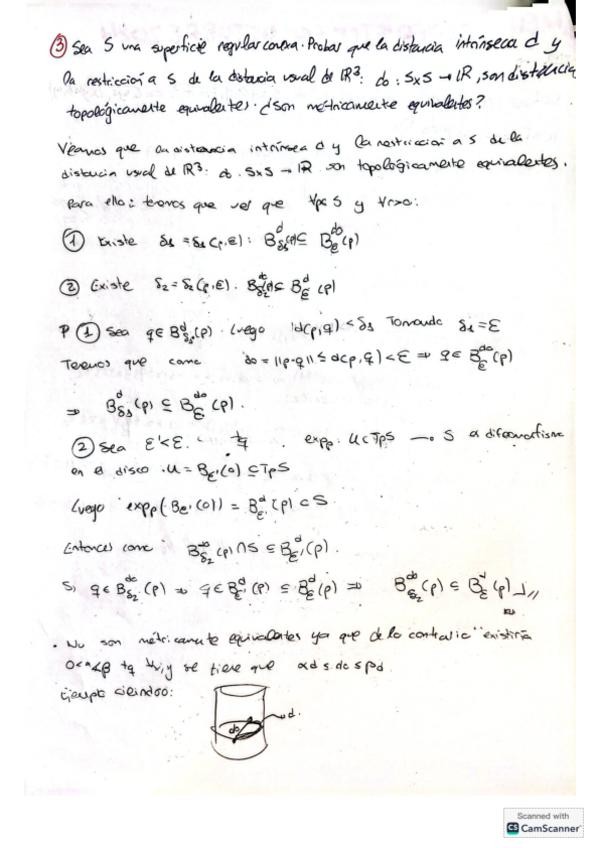 ③ Sea S una superficie regular conexa. Probar que la distancia intrínseca d y
la restricción a S de la distancia usual de ℝ³: d₀: S×S → ℝ, son distancia
topológicamente equivalentes. ¿Son métricamente equivalentes?
Veamos que la distancia intrínseca d y la restricción a S de la
distancia usual de ℝ³: d₀: S×S → ℝ son topológicamente equivalentes.
Para ello: tenemos que ver que ∀p∈S y ∀r>0:
① Existe δ₁ = δ₁(p,ε): B^d_δ₁(p) ⊆ B^d₀_ε(p)
② Existe δ₂ = δ₂(p,ε): B^d₀_δ₂(p) ⊆ B^d_ε(p)
P ① Sea q∈B^d_δ₁(p). Luego d(p,q) < δ₁ Tomando δ₁ = ε
Tenemos que como d₀ = ||p-q|| ≤ d(p,q) < ε ⇒ q∈ B^d₀_ε(p)
⇒ B^d_δ₁(p) ⊆ B^d₀_ε(p).
② Sea ε' < ε. tq exp_p: U⊂TpS → S a difeomorfismo
en el disco U = B_ε'(0) ⊆ TpS
Luego exp_p(B_ε'(0)) = B^d_ε'(p) ⊂ S
Entonces como B^d₀_δ₂(p)∩S ⊆ B^d_ε'(p).
Si q∈B^d₀_δ₂(p) ⇒ q∈B^d_ε'(p) ⊆ B^d_ε(p) ⇒ B^d₀_δ₂(p) ⊆ B^d_ε(p)
· No son métricamente equivalentes ya que de lo contrario existiría
0<α<β tq y se tiene que αd ≤ d₀ ≤ βd.
Ejemplo cilindro:
d₀
d.
Scanned with
CS CamScanner